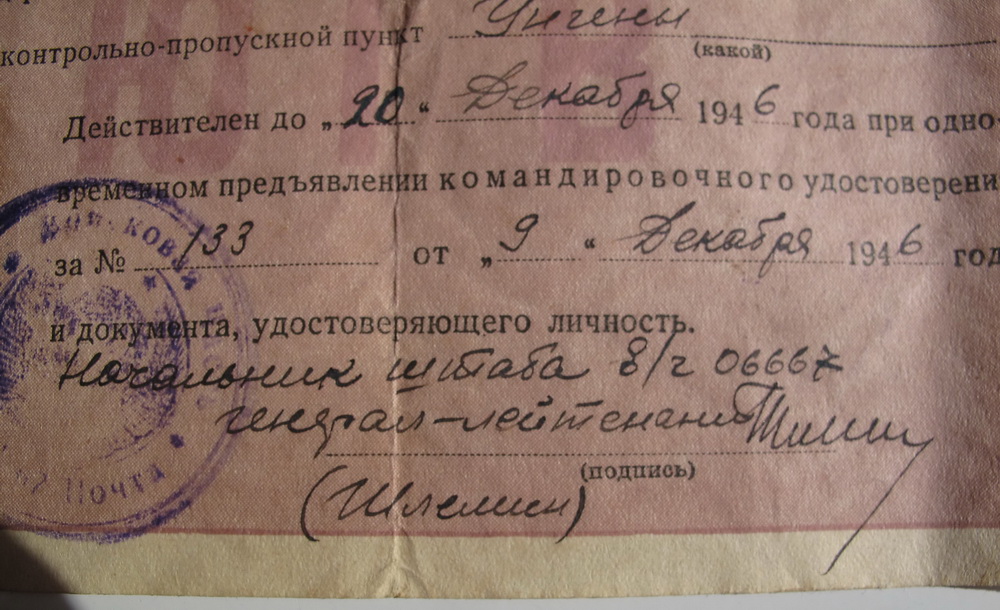 контрольно-пропускной пункт Унгены
(какой)
Действителен до „20“ Декабря 1946 года при одно-
временном предъявлении командировочного удостоверени
за № 133 от „9“ Декабря 1946 год
и документа, удостоверяющего личность.
Начальник штаба в/ч 06667
генерал-лейтенант
(подпись)
(Шлемин)
Почта